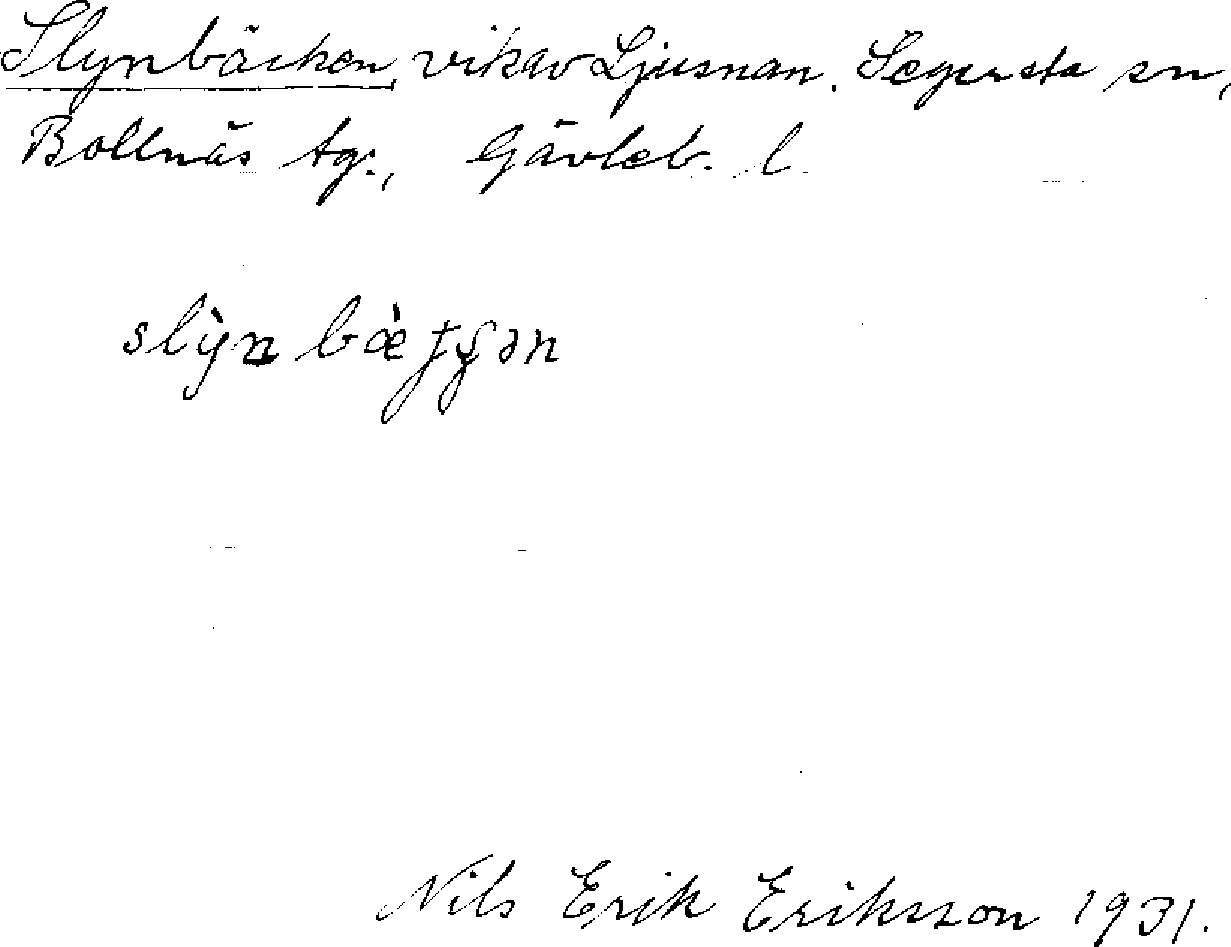 Slynbäcken, vik av Ljusnan. Segersta sn,
Bollnäs tg., Gävleb. l.
Nils Erik Eriksson 1931.